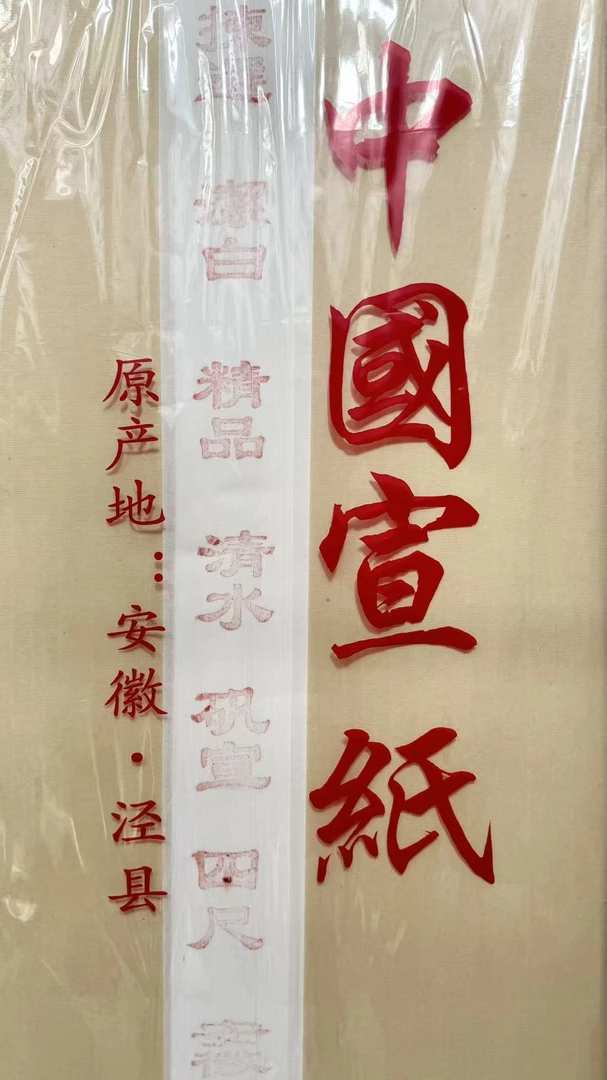 中國宣紙
潔白 精品 清水 矾宣 四尺
原产地：安徽·泾县